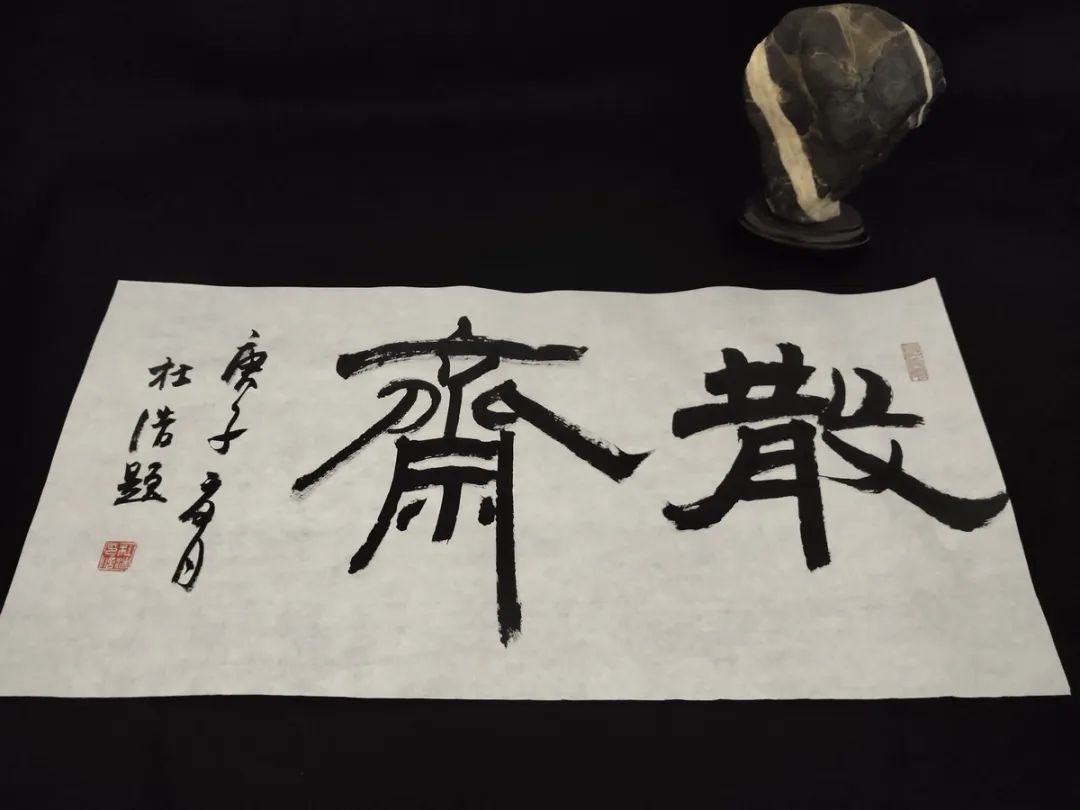 散齋
庚子夏月
杜浩題